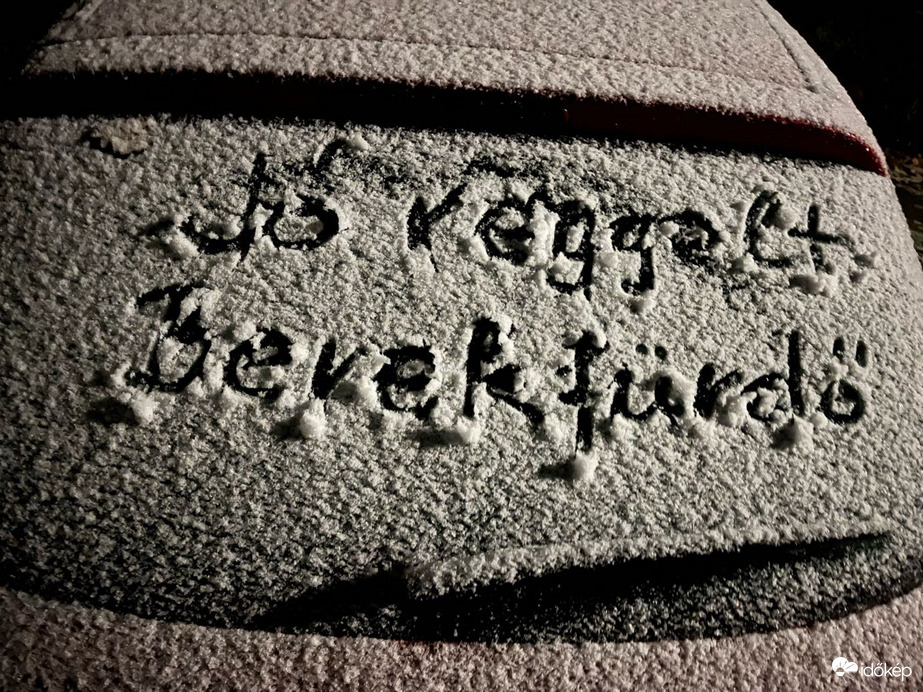 Jó reggelt
Berekfürdő
időkép